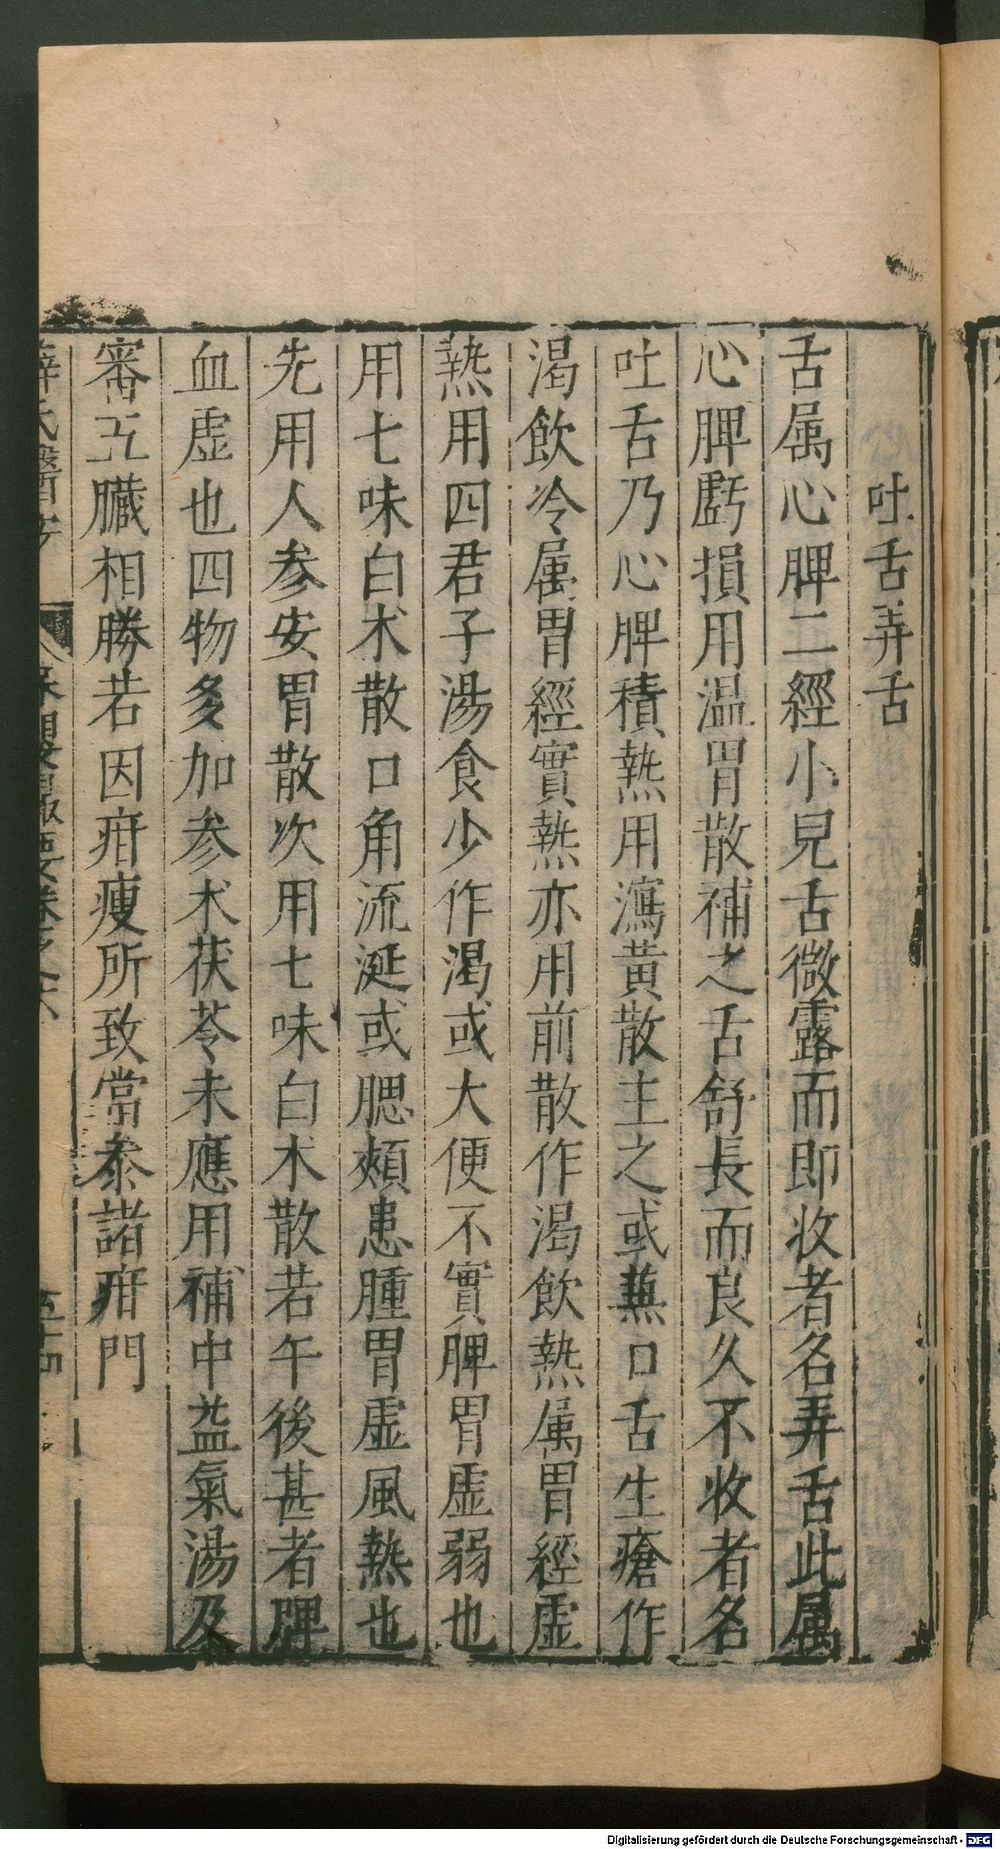 吐舌弄舌
舌属心脾二經小兒舌微露而即收者名弄舌此属
心脾虧損用温胃散補之舌舒長而良久不收者名
吐舌乃心脾積熱用瀉黄散主之或蕪口舌生瘡作
渴飲冷属胃經實熱亦用前散作渴飲熱属胃經虚
熱用四君子湯食少作渴或大便不實脾胃虚弱也
用七味白术散口角流涎或腮頰患腫胃虚風熱也
先用人参安胃散次用七味白术散若午後甚者脾
血虚也四物多加参术茯苓未應用補中益氣湯及
審五臟相勝若因疳瘦所致當叅諸疳門
薛氏醫按 保嬰撮要卷之六 五十四
Digitalisierung gefördert durch die Deutsche Forschungsgemeinschaft - DFG